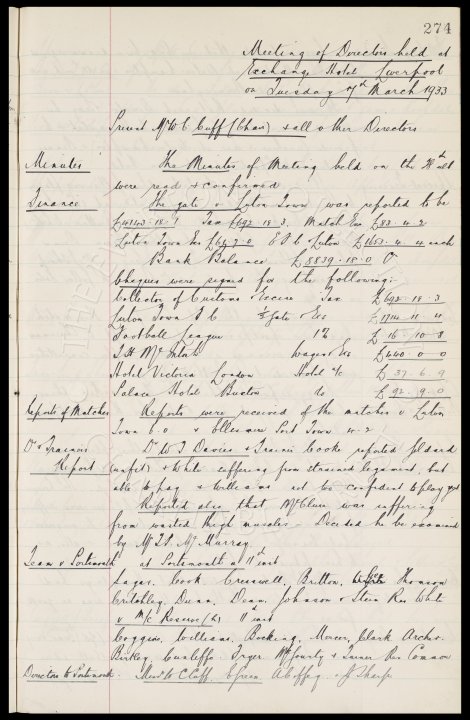 274
Meeting of Directors held at
Exchange Hotel Liverpool
on Tuesday 7th March 1933
Present Mr W C Cuff (Chair) & all other Directors
Minutes The Minutes of Meeting held on the ult
were read & confirmed
Finance The gate v Luton Town was reported to be
Tax £692.18.3. Match Exs £83.4.2
Luton Town Exs £64.7.0 E & L Luton £1653.4.4 each
Bank Balance £5839.18.0
Cheques were signed for the following:
Collector of Customs & Excise Tax £692.18.3
Luton Town F C ½ Gate & Exs £1714.11.4
Football League 1% £16.10.8
Wages & Exs £440.0.0
Hotel Victoria London Hotel a/c £37.6.9
Palace Hotel Buxton do £92.9.0
Reports of Matches Reports were received of the matches v Luton
Town 6.0 & Ellesmere Port Town 4.2
Dr & Trainers Dr W J Davies & Trainer Cooke reported
Report (unfit) & White suffering from strained ligament, but
able to play & Williams not too confident to play yet
Reported also that McClure was suffering
from wasted thigh muscles. Decided he be examined
by Mr McMurray
Team v Portsmouth at Portsmouth 11th inst
Sagar. Cook Cresswell, Britton, Thomson
Critchley, Dunn, Dean, Johnson & Stein Res White
v M/c Reserve (h) 11th inst
Coggins, Williams, Bocking, Mercer, Clark Archer.
Birtley, Cunliffe. McGourty & Turner Res Common
Directors to Portsmouth. Messrs Cuff, Green A Coffey & J Sharp